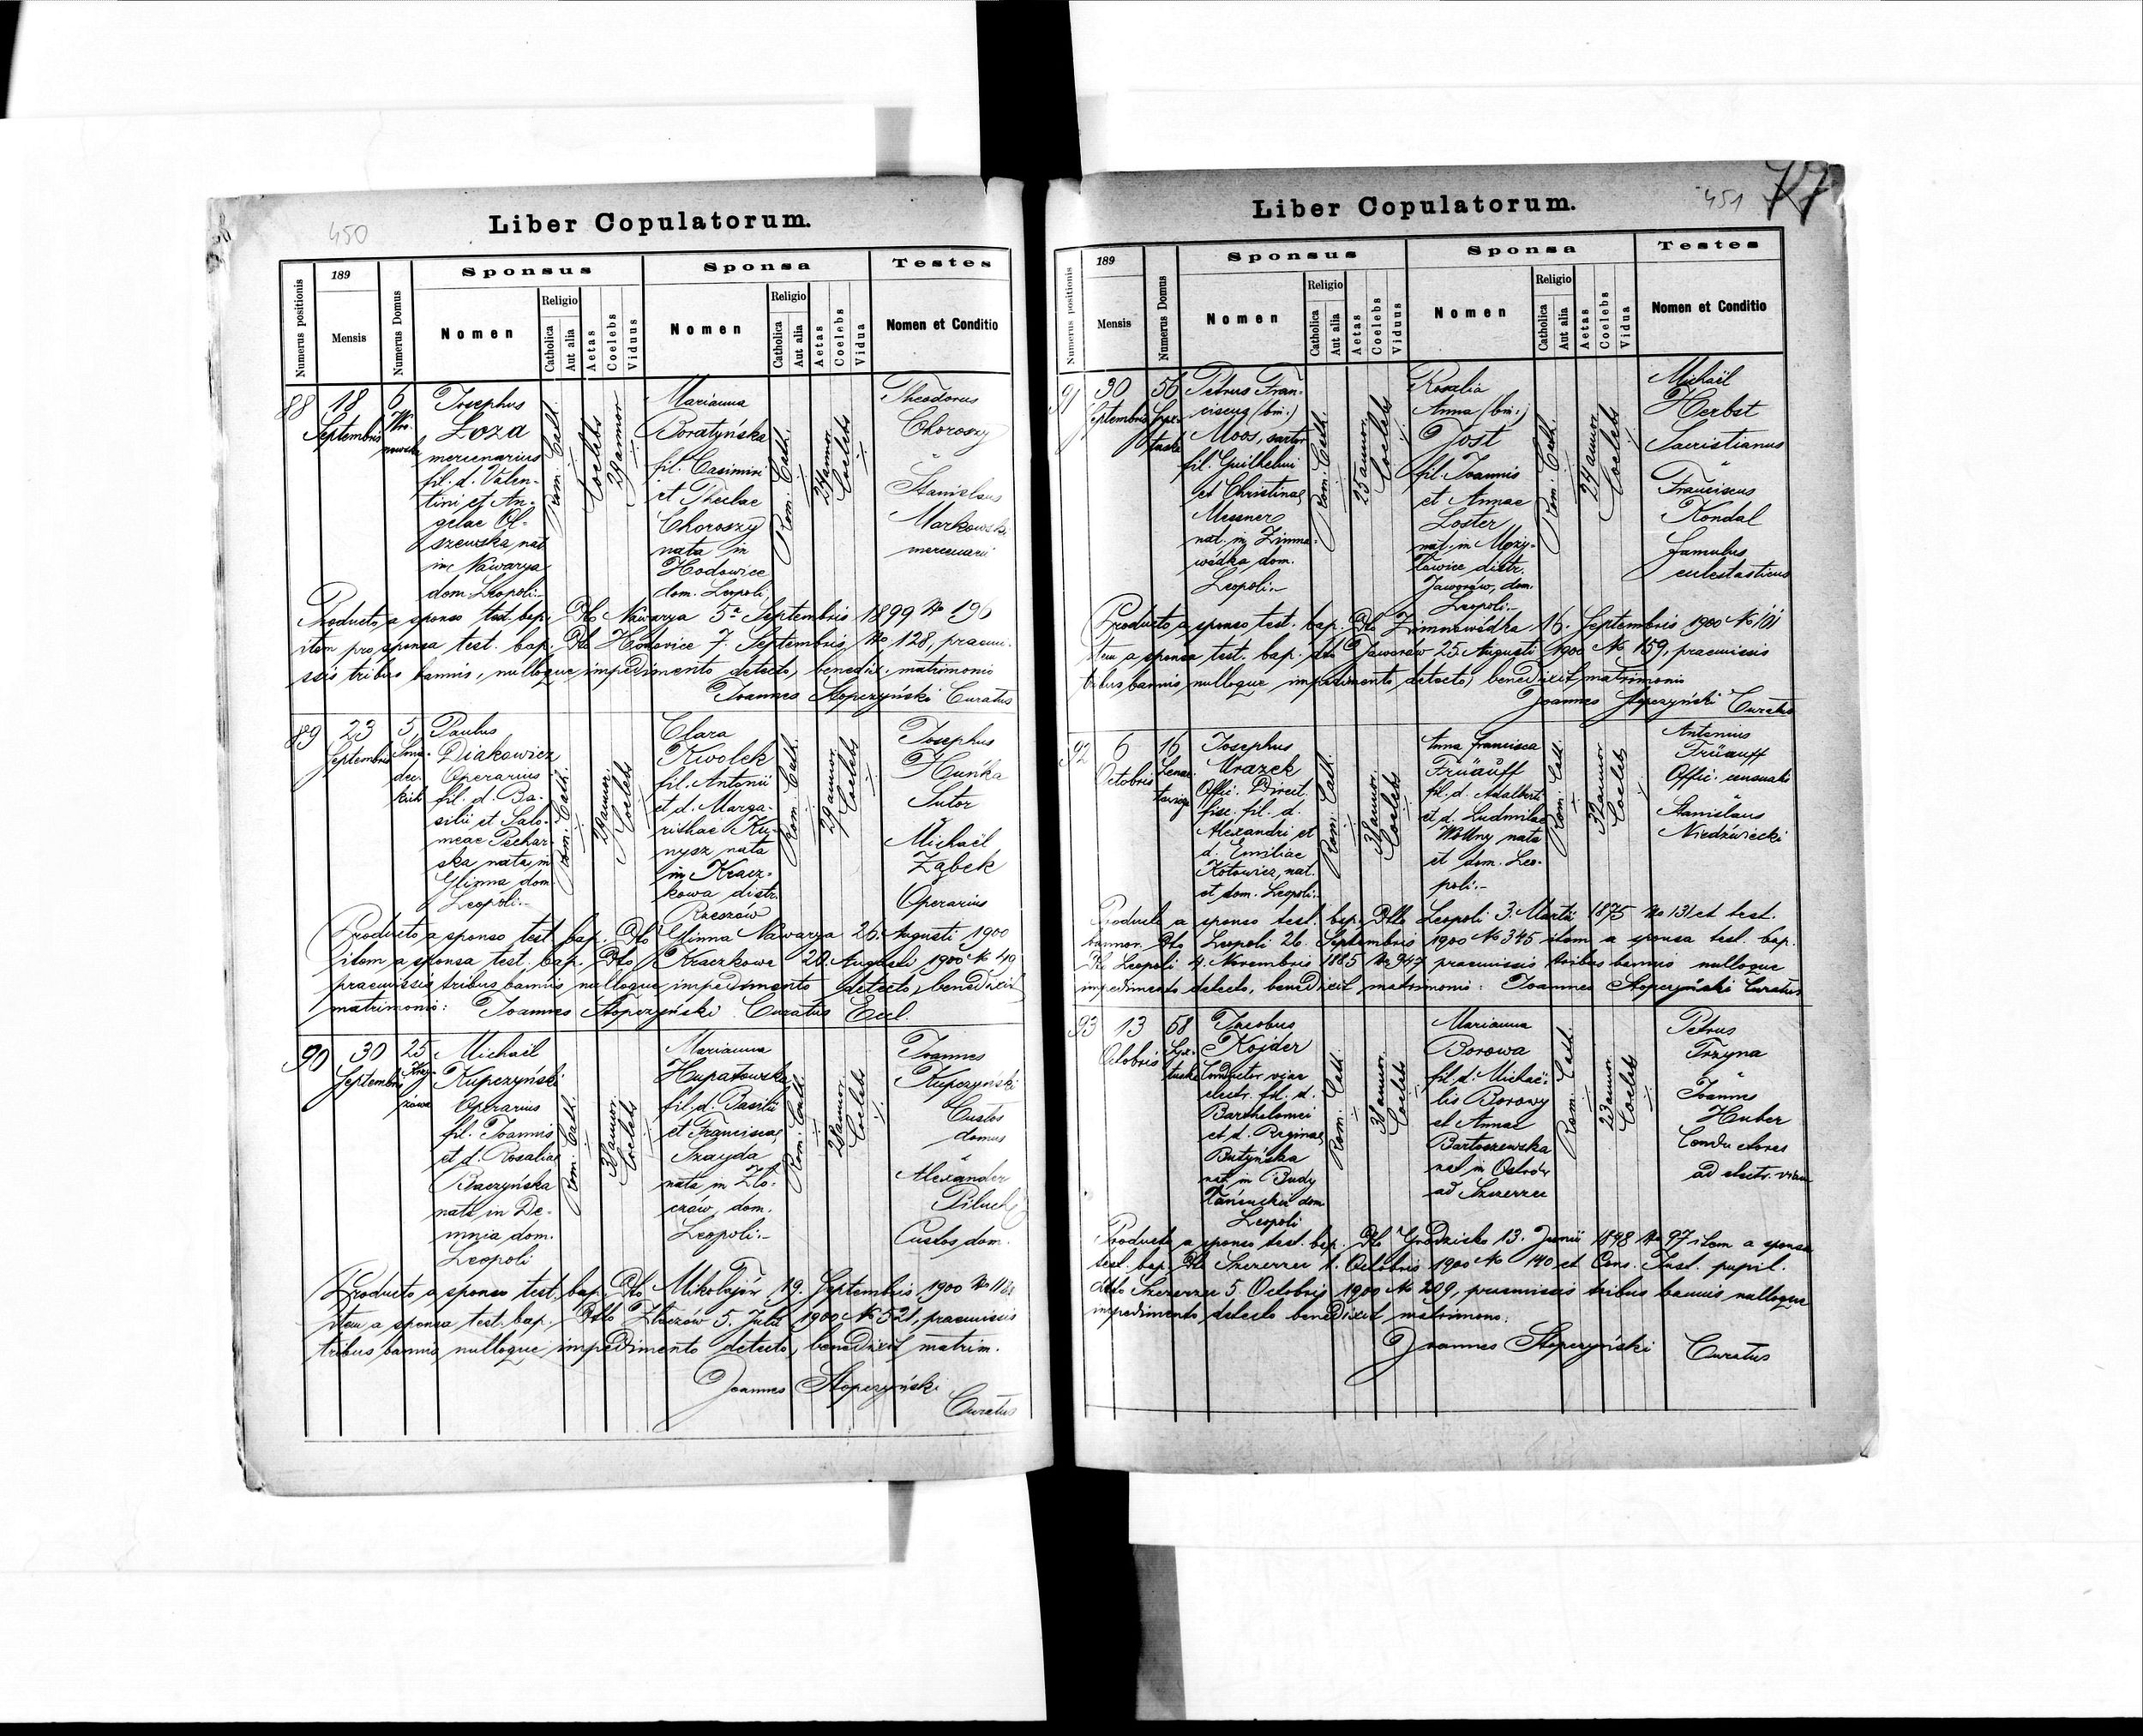 450
Liber Copulatorum.
Numerus positionis
189
Mensis
Numerus Domus
Sponsus
Nomen
Religio
Catholica
Aut alia
Aetas
Coelebs
Viduus
Sponsa
Nomen
Religio
Catholica
Aut alia
Aetas
Coelebs
Vidua
Testes
Nomen et Conditio
88
18
Septembris
6
Josephus
Łoza
mercenarius
fil. d. Valen-
tini et An-
gelae Ol-
szewska nat
in Nawarya
dom. Leopoli.-
Rom. Cath.
Coelebs
29 annor
Marianna
Boratyńska
fil. Casimiri
et Theclae
Choroszy
nata in
Hodowice
dom. Leopoli,
Rom. Cath.
24 annor.
Coelebs
Theodorus
Choroszy
Stanislaus
Markowski
mercenarii
Producto a sponso test. bap. Dto Nawarya 5a Septembris 1899 No 196
item pro sponsa test. bap. Dto Hodowice 7. Septembris, No 128, praemi-
ssis tribus bannis, nulloque impedimento detecto, benedix. matrimonio
Joannes Stopczyński Curatus
89
23
Septembris
5,
Paulus
Diakowicz
Operarius
fil. d. Ba-
silii et Salo-
meae Pechar-
ska nata, in
Glinna dom.
Leopoli.-
Rom. Cath.
29 annor.
Coelebs
Clara
Kwolek
fil. Antonii
et d. Marga-
rithae Ku-
nysz nata
in Kracz-
kowa distr.
Rzeszów
Rom. Cath.
29 annor.
Coelebs
Josephus
Huńka
Sutor
Michaël
Ząbek
Operarius
Producto a sponso test. bap. Dto Glinna Nawarya 26. Augusti 1900
item a sponsa test. bap. Dto Kraczkowa 20. Augusti 1900 No 49
praemissis tribus bannis nulloque impedimento detecto, benedixit
matrimonio: Joannes Stopczyński Curatus Eccl.
90
30
Septembris
25
Michaël
Kupczyński
Operarius
fil. Joannis
et d. Rosaliae
Raczyńska
nata in De-
mnia dom.
Leopoli
Rom. Cath.
annor.
Coelebs
Marianna
Hupałowska
fil. d. Basilii
et Franciscae
Szayda
nata in Zło-
czów, dom.
Leopoli.-
Rom. Cath.
28 annor.
Coelebs
Joannes
Kupczyński
Custos
domus
Alexander
Custos dom.
Producto a sponso test. bap. Dto Mikołajów, 19. Septembris 1900 No
item a sponsa test. bap. Dtto Złoczów 5. Julii 1900 No 521, praemissis
tribus bannis nulloque impedimento detecto, benedixit matrim.
Joannes Stopczyński
Curatus
451
77
Liber Copulatorum.
Numerus positionis
189
Mensis
Numerus Domus
Sponsus
Nomen
Religio
Catholica
Aut alia
Aetas
Coelebs
Viduus
Sponsa
Nomen
Religio
Catholica
Aut alia
Aetas
Coelebs
Vidua
Testes
Nomen et Conditio
91
30
Septembris
56
Petrus Fran-
ciscus (bin.)
Moos, sartor
fil. Guilhelmi
et Christinae
Messner
nat. in Zimna-
wódka, dom.
Leopoli.-
Rom. Cath.
25 annor.
Coelebs
Rosalia
Anna (bin.)
Jost
fil. Joannis
et Annae
Loster
nat. in Moży-
łowice distr.
Jaworów, dom.
Leopoli.-
Rom. Cath.
24 annor.
Coelebs
Michaël
Herbst
Sacristianus
Franciscus
Kondal
famulus
eclestasticus
Producto a sponso test. bap. Dto Zimnawódka 16. Septembris 1900 No 101
item a sponsa test. bap. dto Jaworów 25. Augusti 1900 No 159, praemissis
tribus bannis nulloque impedimento detecto, benedixit matrimonio
Joannes Stopczyński Curatus
92
6
Octobris
16
Josephus
Mrazek
Offic. Direct.
fisc. fil. d.
Alexandri et
d. Emiliae
Kotowicz, nat.
et dom. Leopoli.-
Rom. Cath.
annor.
Coelebs
Anna Francisca
Früauff
fil. d. Adalberti
et d. Ludmilae
Wollny nata
et dom. Leo-
poli.-
Rom. Cath.
annor
Coelebs
Antonius
Früauff
Offic. censuali
Stanislaus
Niedźwiecki
Producto a sponso test. bap. Dtto Leopoli 3. Martii 1875 No 131 et test.
bannor. Dto Leopoli 26. Septembris 1900 No 345 item a sponsa test. bap.
Dto Leopoli 4. Novembris 1885 No 947 praemissis tribus bannis nulloque
impedimento detecto, benedixit matrimonio: Joannes Stopczyński Curatus
93
13
Octobris
58
Jacobus
Kojder
Conductor viae
electr. fil. d.
Barthelomei
et d. Reginae
Butyńska
nat in Budy
Łańcuckie dom.
Leopoli
Rom. Cath.
annor.
Coelebs
Marianna
Borowa
fil. d. Michaë-
lis Borowy
et Annae
Bartoszewska
nat in Ostrów
ad Szczerzec
Rom. Cath.
23 annor
Coelebs
Petrus
Trzyna
Joannes
Huber
Conductores
ad electr. viam
Producto a sponso test. bap. Dto Grodzisko 13. Junii 1898 No 97 item a sponsa
test. bap. Dto Szczerzec 1. Octobris 1900 No 140 et Cons. Inst. pupil.
ddto Szczerzec 5. Octobris 1900 No 209, praemissis tribus bannis nulloque
impedimento detecto benedixit matrimonio.
Joannes Stopczyński Curatus